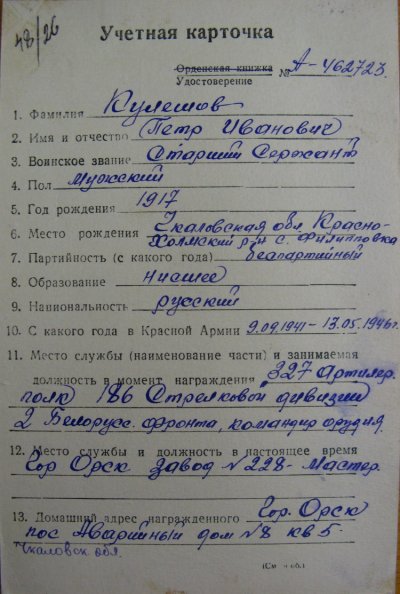 48/26
Учетная карточка
Орденская книжка № А-462723.
Удостоверение
1. Фамилия Кулешов
2. Имя и отчество Петр Иванович
3. Воинское звание Старший Сержант
4. Пол Мужский
5. Год рождения 1917
6. Место рождения Чкаловская обл. Красно-
Холмский р-н с. Филипповка
7. Партийность (с какого года) беспартийный
8. Образование низшее
9. Национальность русский
10. С какого года в Красной Армии 9.09.1941 - 13.05.1946г.
11. Место службы (наименование части) и занимаемая
должность в момент награждения 327 Артилер.
полк 186 Стрелковой дивизии
2 Белорусс. фронта, командир орудия.
12. Место службы и должность в настоящее время
Гор Орск Завод N 228 - Мастер.
13. Домашний адрес награжденного Гор. Орск
пос Аварийный дом N8 кв 5-
Чкаловск. обл.